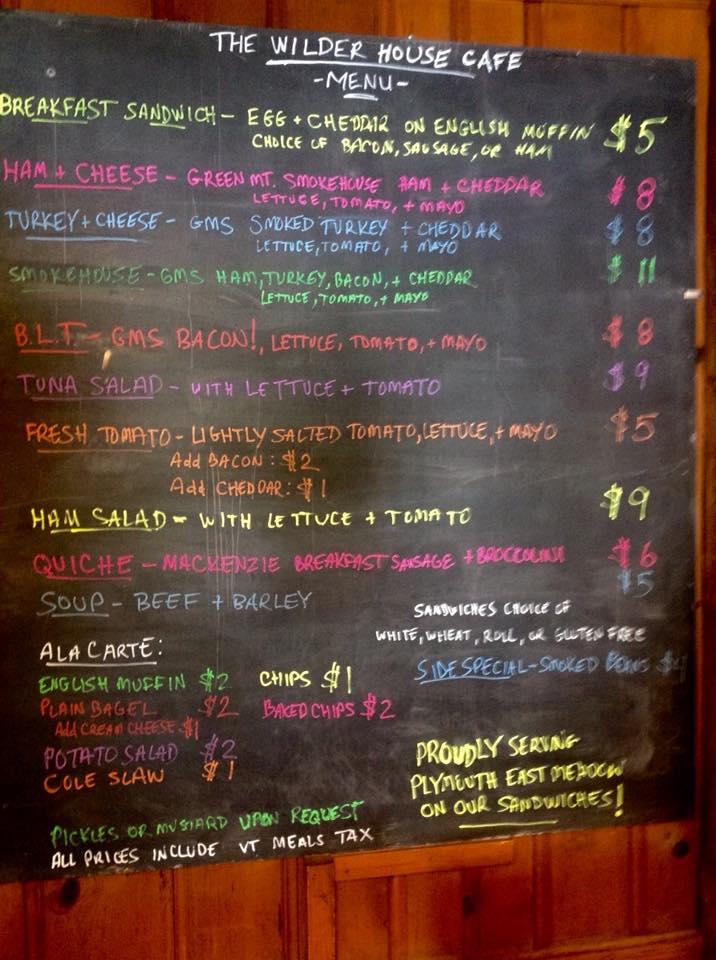 THE WILDER HOUSE CAFE
-MENU-
BREAKFAST SANDWICH - EGG + CHEDDAR ON ENGLISH MUFFIN $5
CHOICE OF BACON, SAUSAGE, OR HAM
HAM + CHEESE - GREEN MT. SMOKEHOUSE HAM + CHEDDAR $8
LETTUCE, TOMATO, + MAYO
TURKEY + CHEESE - GMS SMOKED TURKEY + CHEDDAR $8
LETTUCE, TOMATO, + MAYO
SMOKEHOUSE - GMS HAM, TURKEY, BACON, + CHEDDAR $11
LETTUCE, TOMATO, + MAYO
B.L.T. - GMS BACON!, LETTUCE, TOMATO, + MAYO $8
TUNA SALAD - WITH LETTUCE + TOMATO $9
FRESH TOMATO - LIGHTLY SALTED TOMATO, LETTUCE, + MAYO $5
Add BACON: $2
Add CHEDDAR: $1
HAM SALAD - WITH LETTUCE + TOMATO $9
QUICHE - MACKENZIE BREAKFAST SAUSAGE + BROCCOLINI $6
SOUP - BEEF + BARLEY $5
SANDWICHES CHOICE OF
WHITE, WHEAT, ROLL, OR GLUTEN FREE
SIDE SPECIAL - SMOKED BEANS $4
ALA CARTE:
ENGLISH MUFFIN $2 CHIPS $1
PLAIN BAGEL $2 BAKED CHIPS $2
Add CREAM CHEESE $1
POTATO SALAD $2
COLE SLAW $1
PROUDLY SERVING
PLYMOUTH EAST MEADOW
ON OUR SANDWICHES!
PICKLES OR MUSTARD UPON REQUEST
ALL PRICES INCLUDE VT MEALS TAX